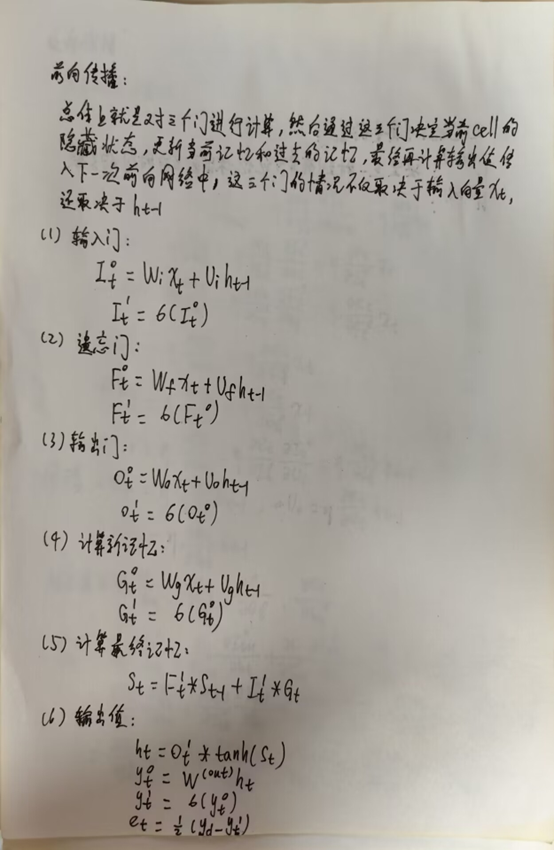 前向传播:
总体上就是对三个门进行计算,然后通过这三个门决定当前cell的
隐藏状态,更新当前记忆和过去的记忆,最后再计算输出值传
入下一次前向网络中,这三个门的情况不仅取决于输入向量 xₜ,
还取决于 hₜ₋₁
(1) 输入门:
Iₜ⁰ = Wᵢ xₜ + Uᵢ hₜ₋₁
Iₜ¹ = 6(Iₜ⁰)
(2) 遗忘门:
Fₜ⁰ = W_f xₜ + U_f hₜ₋₁
Fₜ¹ = 6(Fₜ⁰)
(3) 输出门:
Oₜ⁰ = Wₒ xₜ + Uₒ hₜ₋₁
Oₜ¹ = 6(Oₜ⁰)
(4) 计算新记忆:
Gₜ⁰ = W_g xₜ + U_g hₜ₋₁
Gₜ¹ = 6(Gₜ⁰)
(5) 计算最终记忆:
Sₜ = Fₜ¹ * Sₜ₋₁ + Iₜ¹ * Gₜ
(6) 输出值:
hₜ = Oₜ¹ * tanh(Sₜ)
yₜ⁰ = W^(out) hₜ
yₜ¹ = 6(yₜ⁰)
eₜ = ½ (y_d - yₜ¹)